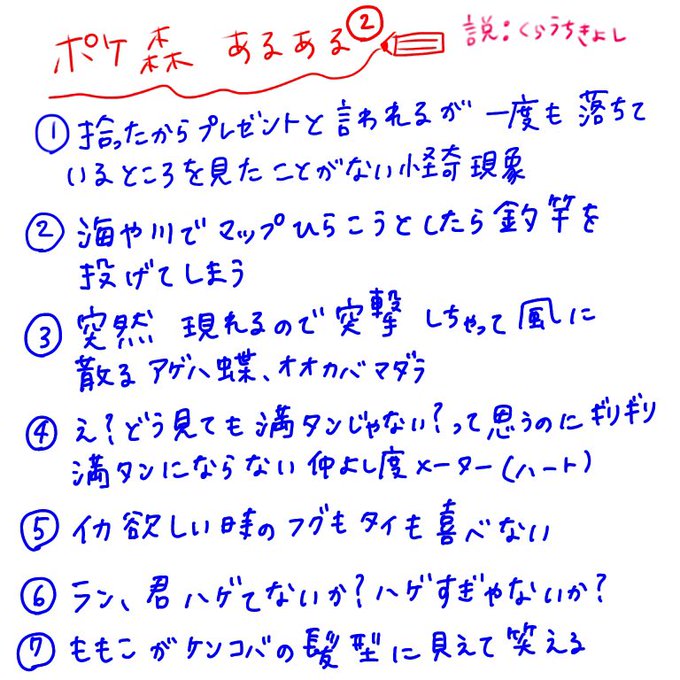 ポケ森 あるある②
説:くらうちきよし
①拾ったからプレゼントと言われるが 一度も落ちて
いるところを見たことがない怪奇現象
②海や川でマップひらこうとしたら釣竿を
投げてしまう
③突然 現れるので突撃しちゃって風に
散るアゲハ蝶、オオカバマダラ
④え?どう見ても満タンじゃない?って思うのにギリギリ
満タンにならない仲よし度メーター(ハート)
⑤イカ欲しい時のフグもタイも喜べない
⑥ラン、君ハゲてないか?ハゲすぎやないか?
⑦ももこがケンコバの髪型に見えて笑える